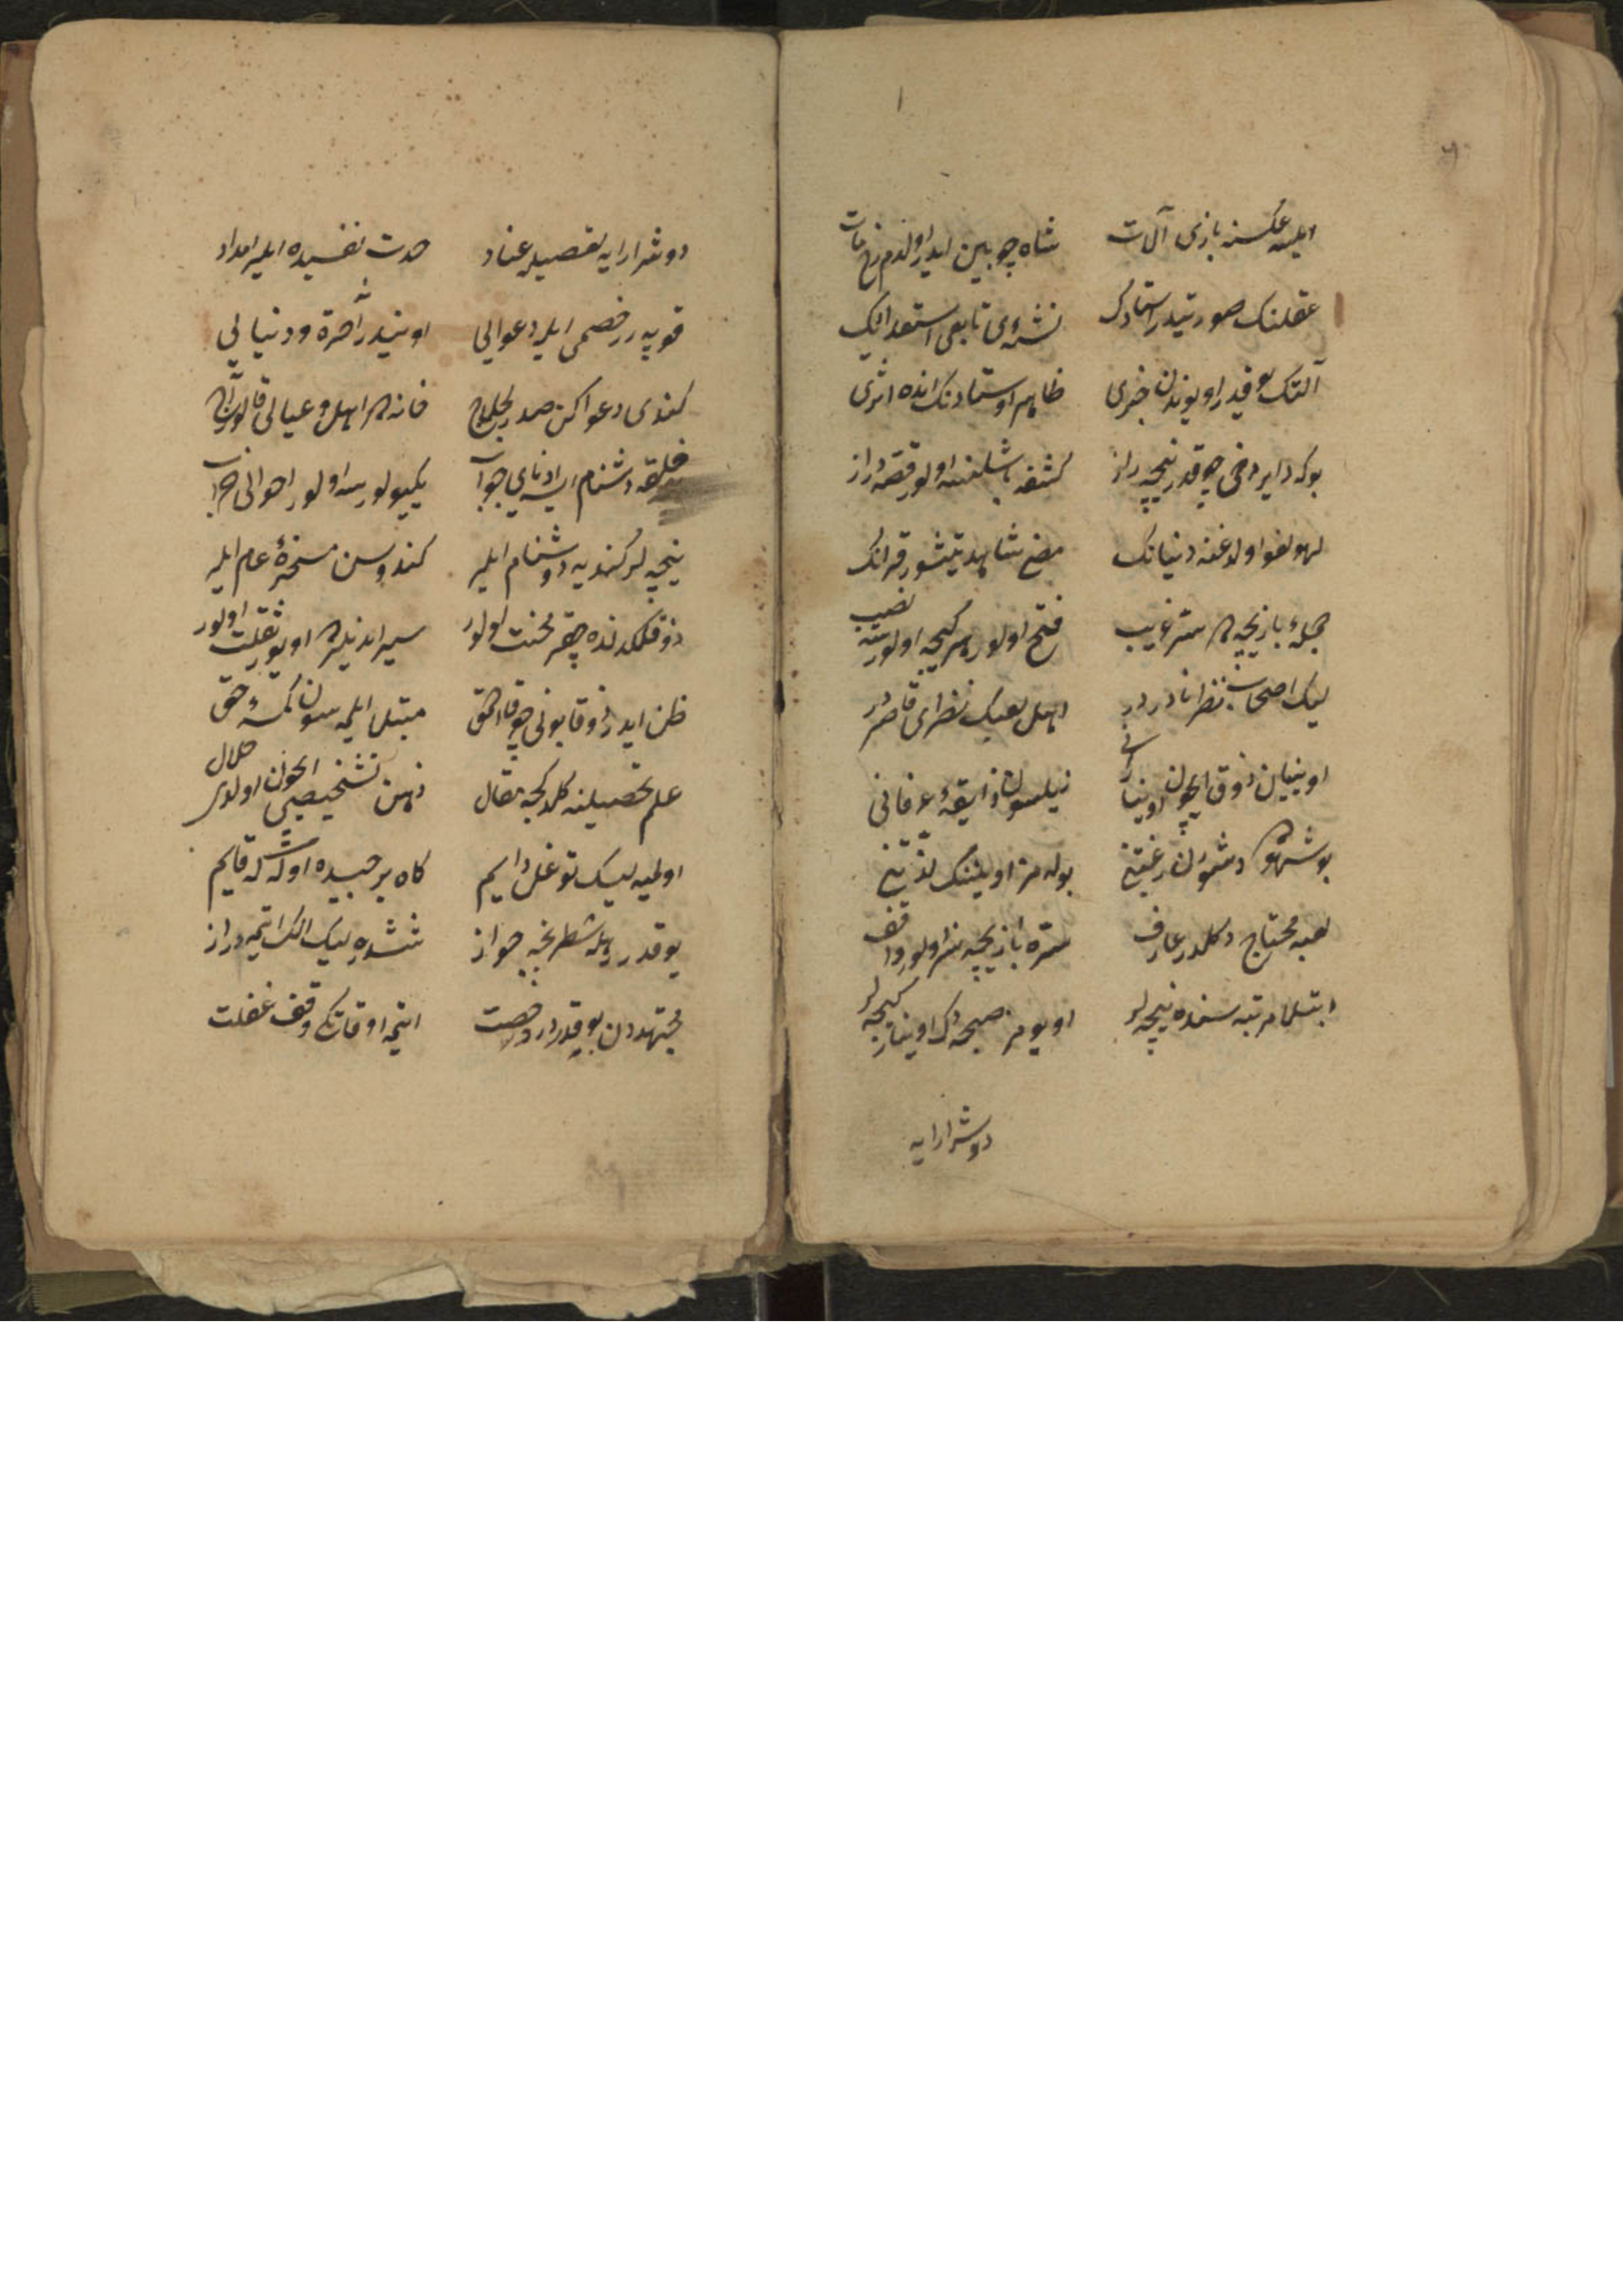 ایلسه عکسنه بازی آلات شاه چوبین ایدر اولدم رخ مات
عقلنک صورتیدر استادک نشئه‌ی تابعی استعدادک
آلتک یوقدر اویوندن خبری ظاهر اوستادنک انده اثری
بوکه دایر دخی چوقدر نیچه راز کشفه باشلنسه اولور قصه دراز
لهو لغو اولدغنه دنیانک نص شاهد یتیشور قرانک
جمله بازیچه ده سر غریب فتح اولور هر کیجه اولورسه نصیب
لیک اصحاب نظر نادردر اهل لعبک نظری قاصردر
اوینیان ذوق ایچون اوینار نیلسون ذایقه عرفانی
بو دشمن رغبتنی بوله مز اویننک لذتینی
لعبه محتاج دکلدر عارف سره بازیچه سز اولور واقف
ابتلا مرتبه سنده نیچه لر اویومز صبحه دک اوینار کیجه لر
دوشر ارایه
دوشر ارایه تعصبله عناد حدت نفسیده ایلر امداد
قوپه رر خصمی ایله دعوایی اونیدر آخرة و دنیایی
کندی دعوا خانه ده اهل و عیالی قالور آج
خلقه دشنام ایسه ادنای جواب ییکیلورسه اولور احوالی خراب
نیچه لر کندیه دشنام ایلر کندوسن مسخره عام ایلر
ذوقلکندنده چقر محنت اولور سیر ایدنلرده اویور ثقلت اولور
ظن ایدر ذوقا بونی چوق احمق مبتلا ایلمه سون کمسه حق
علم تحصیلنه کلدکجه مقال ذهن تشخیصی ایچون اولدی حلال
اولمیه لیک توغل دایم کاه بر حبیده اوله قایم
یوقدر ایله شطرنجه جواز ششدره لیک الک ایتمه دراز
مجتهددن یوقدردر رخصت ایتمه اوقاتکی وقف غفلت